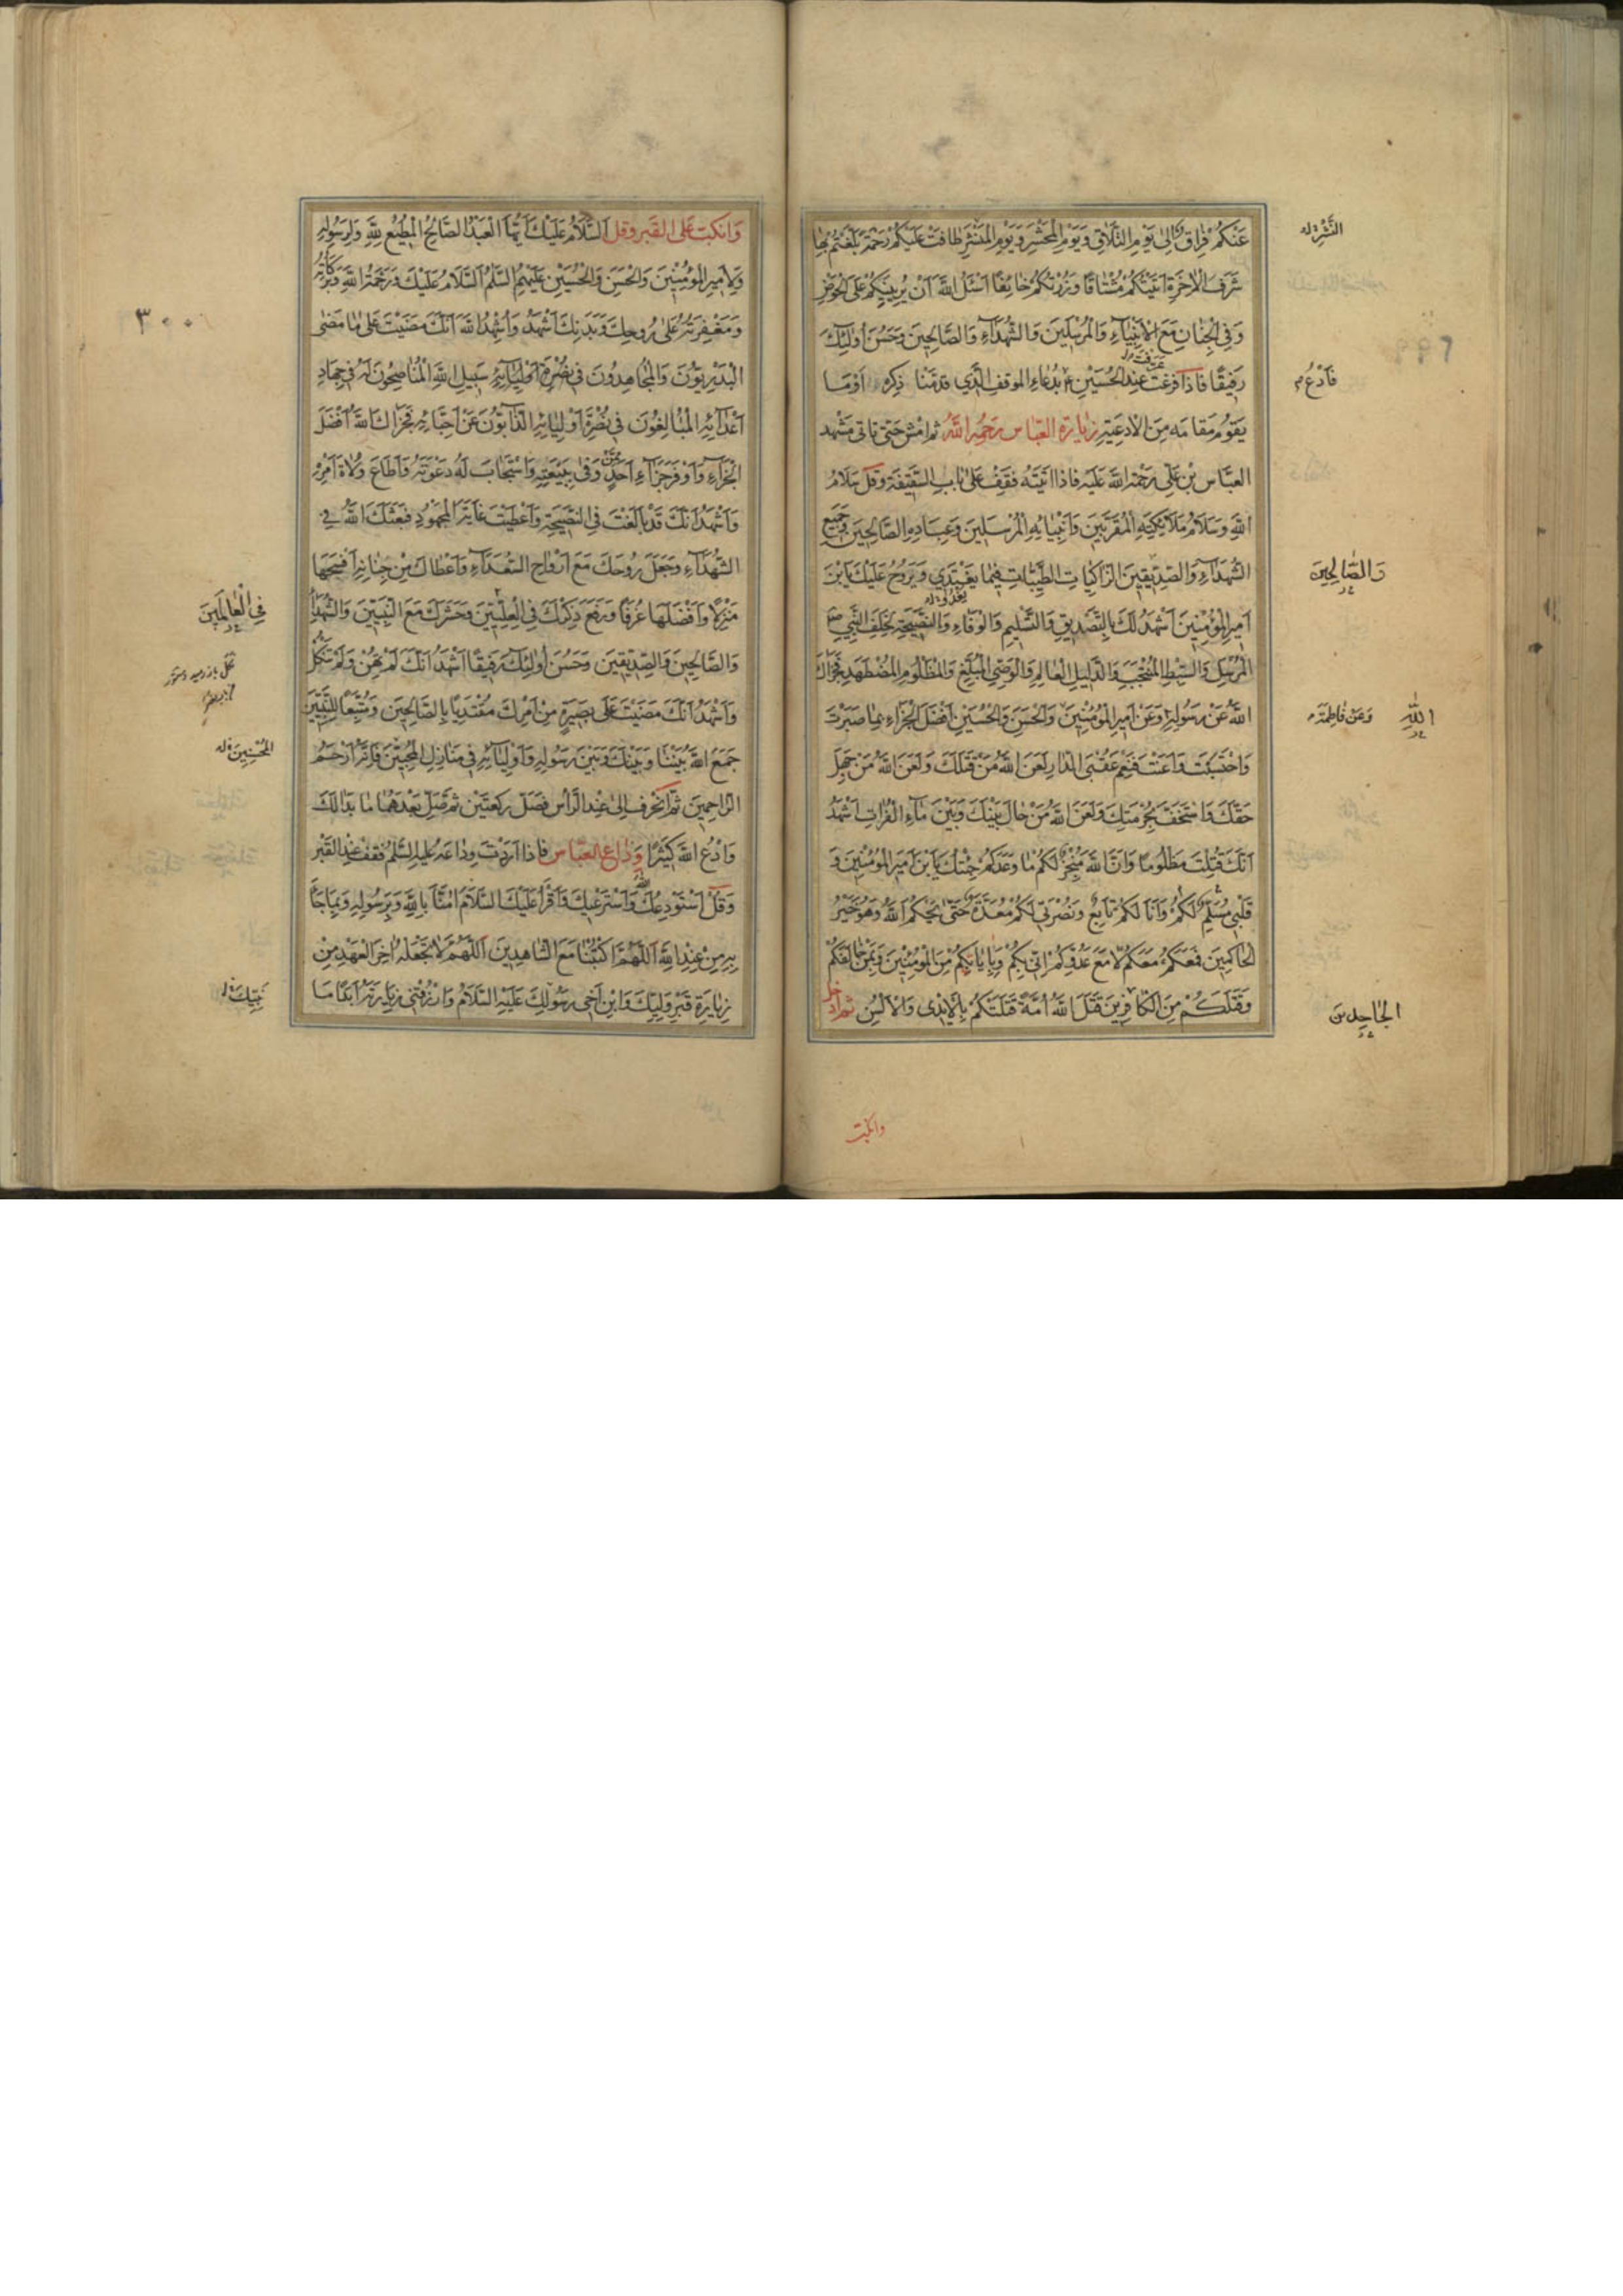 عَنْكُمْ فِرَاقٌ اِلىٰ يَوْمِ التَّلَاقِ وَيَوْمِ الْمَحْشَرِ وَيَوْمِ الْمَنْشَرِ طَافَتْ عَلَيْكُمْ رَحْمَةٌ بَلَغْتُمْ بِهَا
النَّشْرِ
شَرَفَ الْاٰخِرَةِ اَتَيْتُكُمْ مُشْتَاقًا وَزُرْتُكُمْ خَائِفًا اَسْئَلُ اللهَ اَنْ يُرِيَنِيكُمْ عَلَى الْحَوْضِ
وَفِى الْجِنَانِ مَعَ الْاَنْبِيَاۤءِ وَالْمُرْسَلِينَ وَالشُّهَدَاۤءِ وَالصَّالِحِينَ وَحَسُنَ اُولٰئِكَ
رَفِيقًا فاذا فرغت عِندَ الحُسَيْنِ بدُعَاءِ الموقف الَّذي قدمْنا ذِكره اَوْمَا
فَادْعُ
يَقوُمُ مَقامَه مِنَ الادعِيَةِ زيارة العبّاس رَحمه الله ثم امش حَتى تاتى مَشْهد
العبَّاس بْن عَلِى رَحمَة الله عَلَيه فاذا اتيتَه فقف عَلى بَاب السَّقيفة وقل سَلَامُ
اللهِ وَسَلَامُ مَلَاۤئِكَتِهِ الْمُقَرَّبِينَ وَاَنْبِيَائِهِ الْمُرْسَلِينَ وَعِبَادِهِ الصَّالِحِينَ وَجَمِيعِ
الشُّهَدَاۤءِ وَالصِّدِّيقِينَ الزَّاكِيَاتِ الطَّيِّبَاتِ فِيمَا يَغْتَدِي وَيَرُوحُ عَلَيْكَ يَابْنَ
وَالصَّالِحِينَ
اَمِيرِ الْمُؤْمِنِينَ اَشْهَدُ لَكَ بِالتَّصْدِيقِ وَالتَّسْلِيمِ وَالْوَفَاءِ وَالنَّصِيحَةِ لِخَلَفِ النَّبِي
الْمُرْسَلِ وَالسِّبْطِ الْمُنْتَجَبِ وَالدَّلِيلِ الْعَالِمِ وَالْوَصِيِّ الْمُبَلِّغِ وَالْمَظْلُومِ الْمُضْطَهَدِ فَجَزَاكَ
اللهُ عَنْ رَسُولِهِ وَعَنْ اَمِيرِ الْمُؤْمِنِينَ وَالْحَسَنِ وَالْحُسَيْنِ اَفْضَلَ الْجَزَاءِ بِمَا صَبَرْتَ
وَعَنْ فَاطِمَةَ
اللهِ
وَاحْتَسَبْتَ وَاَعَنْتَ فَنِعْمَ عُقْبَى الدَّارِ لَعَنَ اللهُ مَنْ قَتَلَكَ وَلَعَنَ اللهُ مَنْ جَهِلَ
حَقَّكَ وَاسْتَخَفَّ بِحُرْمَتِكَ وَلَعَنَ اللهُ مَنْ حَالَ بَيْنَكَ وَبَيْنَ مَاۤءِ الْفُرَاتِ اَشْهَدُ
اَنَّكَ قُتِلْتَ مَظْلُومًا وَاَنَّ اللهَ مُنْجِزٌ لَكُمْ مَا وَعَدَكُمْ جِئْتُكَ يَابْنَ اَمِيرِ الْمُؤْمِنِينَ وَ
قَلْبِي مُسَلِّمٌ لَكُمْ وَاَنَا لَكُمْ تَابِعٌ وَنُصْرَتِي لَكُمْ مُعَدَّةٌ حَتّىٰ يَحْكُمَ اللهُ وَهُوَ خَيْرُ
الْحَاكِمِينَ فَمَعَكُمْ مَعَكُمْ لَا مَعَ عَدُوِّكُمْ اِنِّي بِكُمْ وَبِاِيَابِكُمْ مِنَ الْمُؤْمِنِينَ وَبِمَنْ خَالَفَكُمْ
وَقَتَلَكُمْ مِنَ الْكَافِرِينَ قَتَلَ اللهُ اُمَّةً قَتَلَتْكُمْ بِالْاَيْدِى وَالْاَلْسُنِ ثم ادخل
الْجَاحِدِينَ
وانكبّ
وَانكبّ عَلى القبر وقل اَلسَّلَامُ عَلَيْكَ اَيُّهَا الْعَبْدُ الصَّالِحُ الْمُطِيعُ لِلّٰهِ وَلِرَسُولِهِ
وَلِاَمِيرِ الْمُؤْمِنِينَ وَالْحَسَنِ وَالْحُسَيْنِ عَلَيْهِمُ السَّلٰمُ اَلسَّلَامُ عَلَيْكَ وَرَحْمَةُ اللهِ وَبَرَكَاتُهُ
٣٠٠
وَمَغْفِرَتُهُ عَلىٰ رُوحِكَ وَبَدَنِكَ اَشْهَدُ وَاُشْهِدُ اللهَ اَنَّكَ مَضَيْتَ عَلىٰ مَا مَضىٰ
الْبَدْرِيُّوْنَ وَالْمُجَاهِدُونَ فِى سَبِيلِ اللهِ الْمُنَاصِحُونَ لَهُ فِى جِهَادِ
اَعْدَاۤئِهِ الْمُبَالِغُونَ فِي نُصْرَةِ اَوْلِيَائِهِ الذَّابُّونَ عَنْ اَحِبَّائِهِ فَجَزَاكَ اللهُ اَفْضَلَ
الْجَزَاۤءِ وَاَوْفَرَ جَزَاۤءِ اَحَدٍ مِمَّنْ وَفىٰ بِبَيْعَتِهِ وَاسْتَجَابَ لَهُ دَعْوَتَهُ وَاَطَاعَ وُلَاةَ اَمْرِهِ
وَاَشْهَدُ اَنَّكَ قَدْ بَالَغْتَ فِى النَّصِيحَةِ وَاَعْطَيْتَ غَايَةَ الْمَجْهُودِ فَبَعَثَكَ اللهُ فِي
الشُّهَدَاۤءِ وَجَعَلَ رُوحَكَ مَعَ اَرْوَاحِ السُّعَدَاۤءِ وَاَعْطَاكَ مِنْ جِنَانِهِ اَفْسَحَهَا
مَنْزِلًا وَاَفْضَلَهَا غُرَفًا وَرَفَعَ ذِكْرَكَ فِى الْعِلِّيِّينَ وَحَشَرَكَ مَعَ النَّبِيِّينَ وَالشُّهَدَاۤءِ
فِى الْعَالَمِينَ
وَالصَّالِحِينَ وَالصِّدِّيقِينَ وَحَسُنَ اُولٰئِكَ رَفِيقًا اَشْهَدُ اَنَّكَ لَمْ تَهِنْ وَلَمْ تَنْكُلْ
وَاَشْهَدُ اَنَّكَ مَضَيْتَ عَلىٰ بَصِيرَةٍ مِنْ اَمْرِكَ مُقْتَدِيًا بِالصَّالِحِينَ وَمُتَّبِعًا لِلنَّبِيِّينَ
جَمَعَ اللهُ بَيْنَنَا وَبَيْنَكَ وَبَيْنَ رَسُولِهِ وَاَوْلِيَاۤئِهِ فِى مَنَازِلِ الْمُخْبِتِينَ فَاِنَّهُ اَرْحَمُ
الْمُحْسِنِينَ
الرَّاحِمِينَ ثم انحَرف اِلىٰ عِند الرَّاْس فصَل رَكعتَيْن ثم صَلّ بَعْدَهُمَا مَا بَدَا لَكَ
وَادْعُ اللهَ كَثِيْرًا وَدَاع العَبّاس فاذا اَرَدْت ودَاعَهُ عليه السَّلٰمُ فقف عِندَ القَبْر
وَقُلْ اَسْتَوْدِعُكَ اللهَ وَاَسْتَرْعِيكَ وَاَقْرَأُ عَلَيْكَ السَّلَامَ اٰمَنَّا بِاللهِ وَبِرَسُولِهِ وَبِمَا جَاۤءَ
بِهِ مِنْ عِنْدِ اللهِ اَللّٰهُمَّ اكْتُبْنَا مَعَ الشَّاهِدِينَ اَللّٰهُمَّ لَا تَجْعَلْهُ اٰخِرَ الْعَهْدِ مِنْ
زِيَارَةِ قَبْرِ وَلِيِّكَ وَابْنِ اَخِى رَسُولِكَ عَلَيْهِ السَّلَامُ وَارْزُقْنِى زِيَارَتَهُ اَبَدًا مَا
نَبِيِّكَ